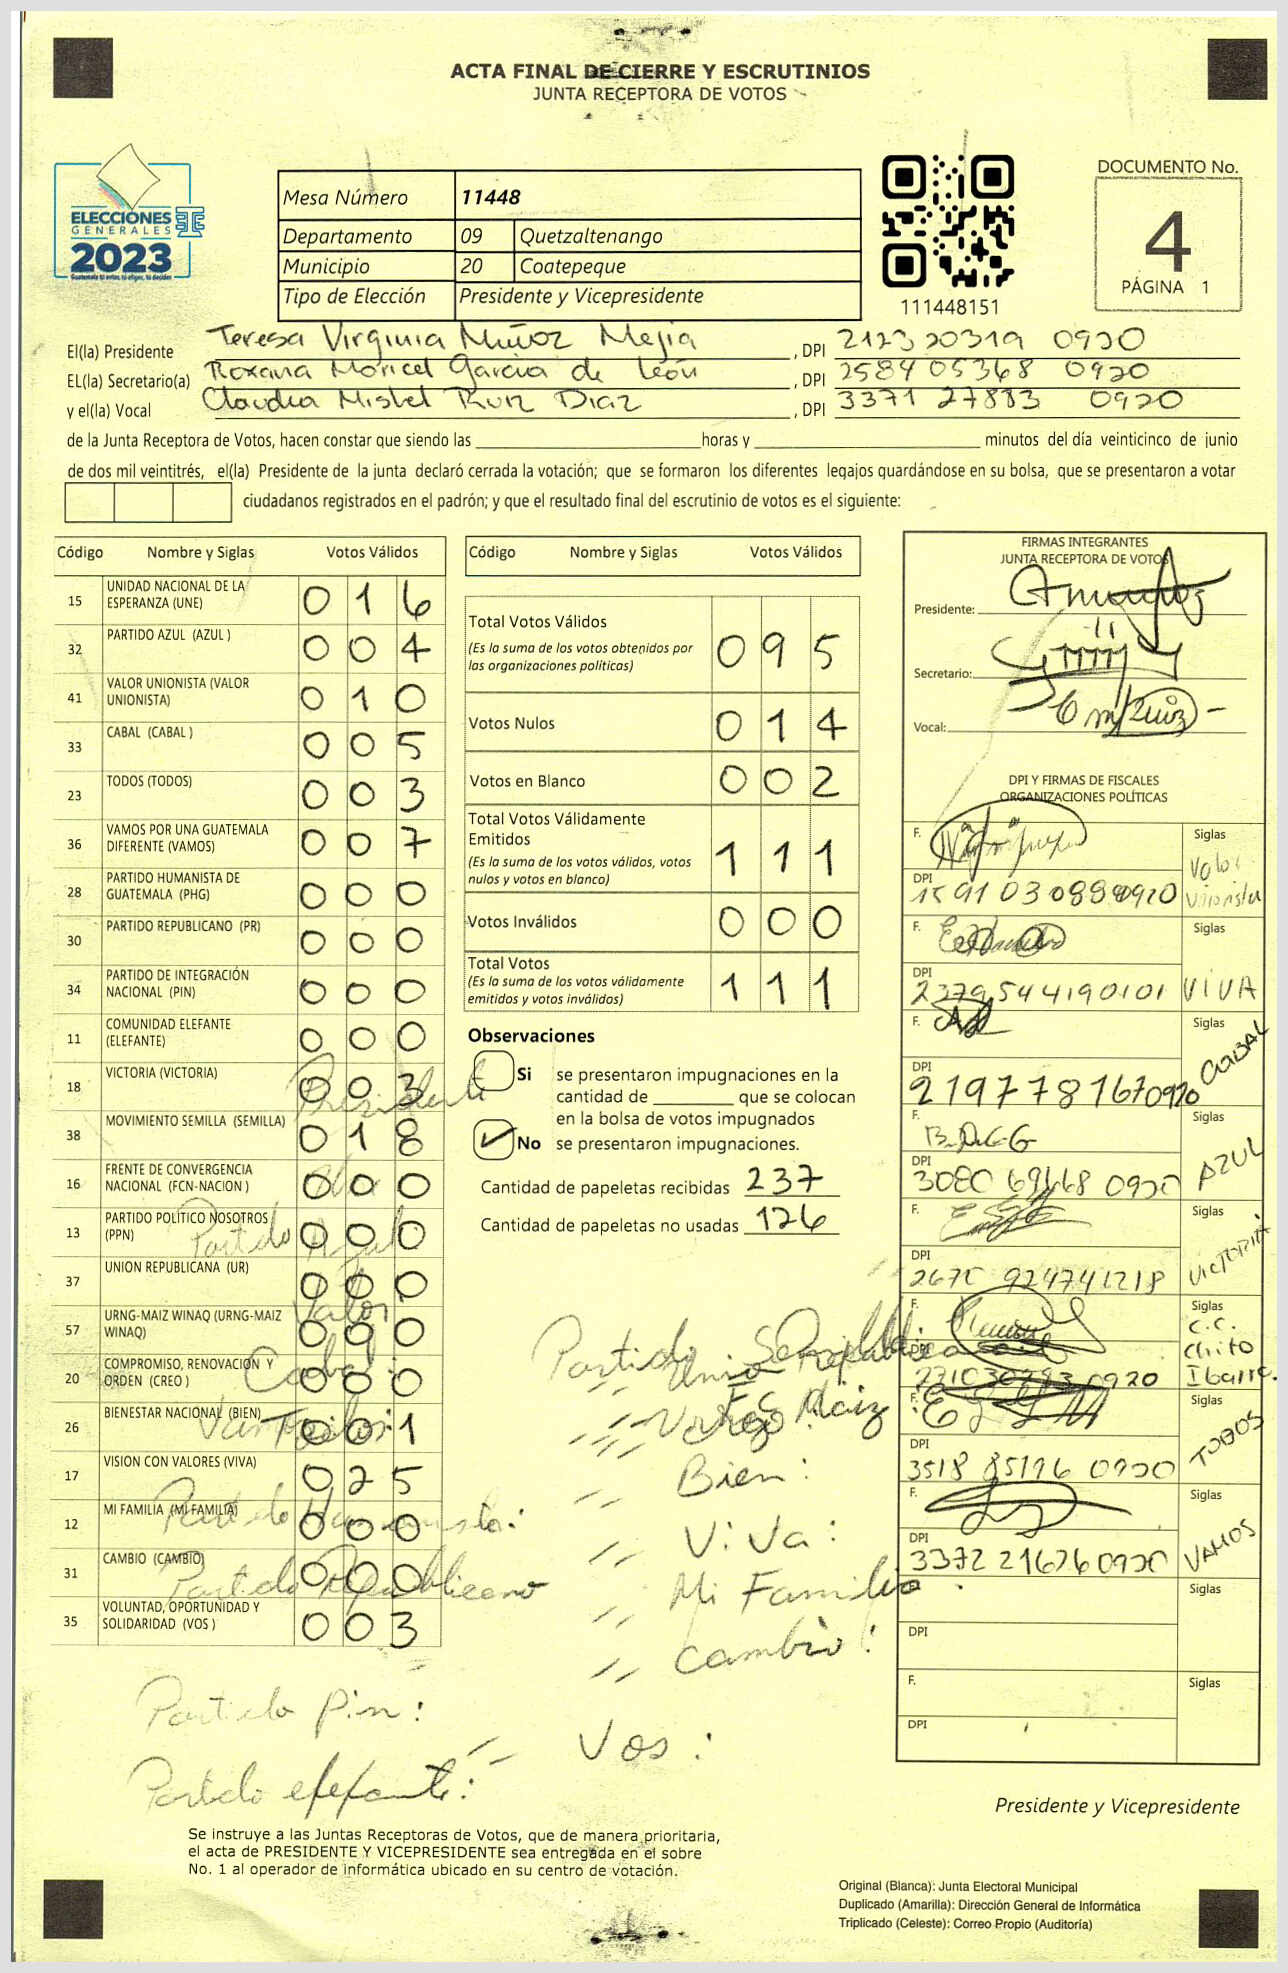 ACTA FINAL DE CIERRE Y ESCRUTINIOS
JUNTA RECEPTORA DE VOTOS
ELECCIONES
GENERALES
2023
Mesa Número 11448
Departamento 09 Quetzaltenango
Municipio 20 Coatepeque
Tipo de Elección Presidente y Vicepresidente
111448151
DOCUMENTO No.
4
PÁGINA 1
El(la) Presidente Teresa Virginia Muñoz Mejia , DPI 212320319 0920
EL(la) Secretario(a) Roxana Maricel Garcia de León , DPI 2584 05368 0920
y el(la) Vocal Claudia Misbel Ruiz Diaz , DPI 3371 27883 0920
de la Junta Receptora de Votos, hacen constar que siendo las horas y minutos del día veinticinco de junio
de dos mil veintitrés, el(la) Presidente de la junta declaró cerrada la votación; que se formaron los diferentes legajos quardándose en su bolsa, que se presentaron a votar
ciudadanos registrados en el padrón; y que el resultado final del escrutinio de votos es el siguiente:
Código Nombre y Siglas Votos Válidos
15 UNIDAD NACIONAL DE LA ESPERANZA (UNE) 016
32 PARTIDO AZUL (AZUL ) 004
41 VALOR UNIONISTA (VALOR UNIONISTA) 010
33 CABAL (CABAL ) 005
23 TODOS (TODOS) 003
36 VAMOS POR UNA GUATEMALA DIFERENTE (VAMOS) 007
28 PARTIDO HUMANISTA DE GUATEMALA (PHG) 000
30 PARTIDO REPUBLICANO (PR) 000
34 PARTIDO DE INTEGRACIÓN NACIONAL (PIN) 000
11 COMUNIDAD ELEFANTE (ELEFANTE) 000
18 VICTORIA (VICTORIA) 003
38 MOVIMIENTO SEMILLA (SEMILLA) 018
16 FRENTE DE CONVERGENCIA NACIONAL (FCN-NACION ) 000
13 PARTIDO POLÍTICO NOSOTROS (PPN) 000
37 UNION REPUBLICANA (UR) 000
57 URNG-MAIZ WINAQ (URNG-MAIZ WINAQ) 000
20 COMPROMISO, RENOVACIÓN Y ORDEN (CREO ) 000
26 BIENESTAR NACIONAL (BIEN) 001
17 VISION CON VALORES (VIVA) 025
12 MI FAMILIA (MI FAMILIA) 000
31 CAMBIO (CAMBIO) 000
35 VOLUNTAD, OPORTUNIDAD Y SOLIDARIDAD (VOS ) 003
Presidente
Partido Azul
Valor
Cabal:
Vamos
Todos:
Partido Humanista:
Partido Republicano
Partido Pin:
Partido elefante:
Código Nombre y Siglas Votos Válidos
Total Votos Válidos 095
(Es la suma de los votos obtenidos por
las organizaciones políticas)
Votos Nulos 014
Votos en Blanco 002
Total Votos Válidamente
Emitidos 111
(Es la suma de los votos válidos, votos
nulos y votos en blanco)
Votos Inválidos 000
Total Votos 111
(Es la suma de los votos válidamente
emitidos y votos inválidos)
Observaciones
Si se presentaron impugnaciones en la
cantidad de que se colocan
en la bolsa de votos impugnados
No se presentaron impugnaciones.
Cantidad de papeletas recibidas 237
Cantidad de papeletas no usadas 126
Partido
Maiz
Bien:
ViVa:
Mi Familia:
cambio:
Vos:
FIRMAS INTEGRANTES
JUNTA RECEPTORA DE VOTOS
Presidente:
Secretario:
Vocal:
DPI Y FIRMAS DE FISCALES
ORGANIZACIONES POLÍTICAS
F. Siglas Valor Unionista
DPI 1591 03088 0920
F. Siglas VIVA
DPI 2379544190101
F. Siglas CABAL
DPI 2197781670920
F. B.D.G.G Siglas AZUL
DPI 3080 69668 0920
F. Siglas VICTORIA
DPI 2670 924741218
F. Siglas C.C. Chito Ibarra.
DPI
F. Siglas TODOS
DPI 3518 85196 0920
F. Siglas VAMOS
DPI 3372 21676 0920
Siglas
DPI
F. Siglas
DPI
Presidente y Vicepresidente
Se instruye a las Juntas Receptoras de Votos, que de manera prioritaria,
el acta de PRESIDENTE Y VICEPRESIDENTE sea entregada en el sobre
No. 1 al operador de informática ubicado en su centro de votación.
Original (Blanca): Junta Electoral Municipal
Duplicado (Amarilla): Dirección General de Informática
Triplicado (Celeste): Correo Propio (Auditoría)